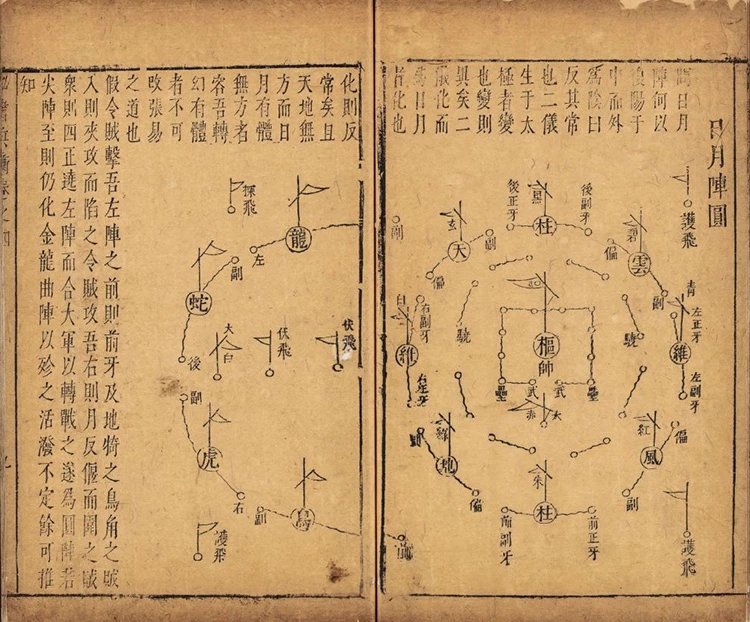 日月陣圓
問日月
陣何以
後陽于
中而外
為陰曰
反其常
也二儀
生于太
極者變
也變則
異矣二
儀化而
為日月
者化也
護飛
後副牙
後正牙
黑
柱
碧
雲
偏
副
玄
天
副
偏
副
青
左正牙
維
左副牙
白
右副牙
維
右正牙
驍
驍
樞
帥
壘
武
武
壘
赤
太
紅
風
偏
副
綠
地
偏
朱
柱
前副牙
前正牙
護飛
前
化則反
常矣且
天地無
方而日
月有體
無方者
容吾轉
幻有體
者不可
改張易
之道也
探飛
龍
左
副
蛇
後
大
白
伏飛
伏飛
副
虎
右
副
鳥
護飛
假令賊擊吾左陣之前則前牙及地犄之鳥角之賊
入則夾攻而陷之令賊攻吾右則月反偃而圍之賊
衆則四正遶左陣而合大軍以轉戰之遂為圓陣若
尖陣至則仍化金龍曲陣以殄之活潑不定餘可推
知